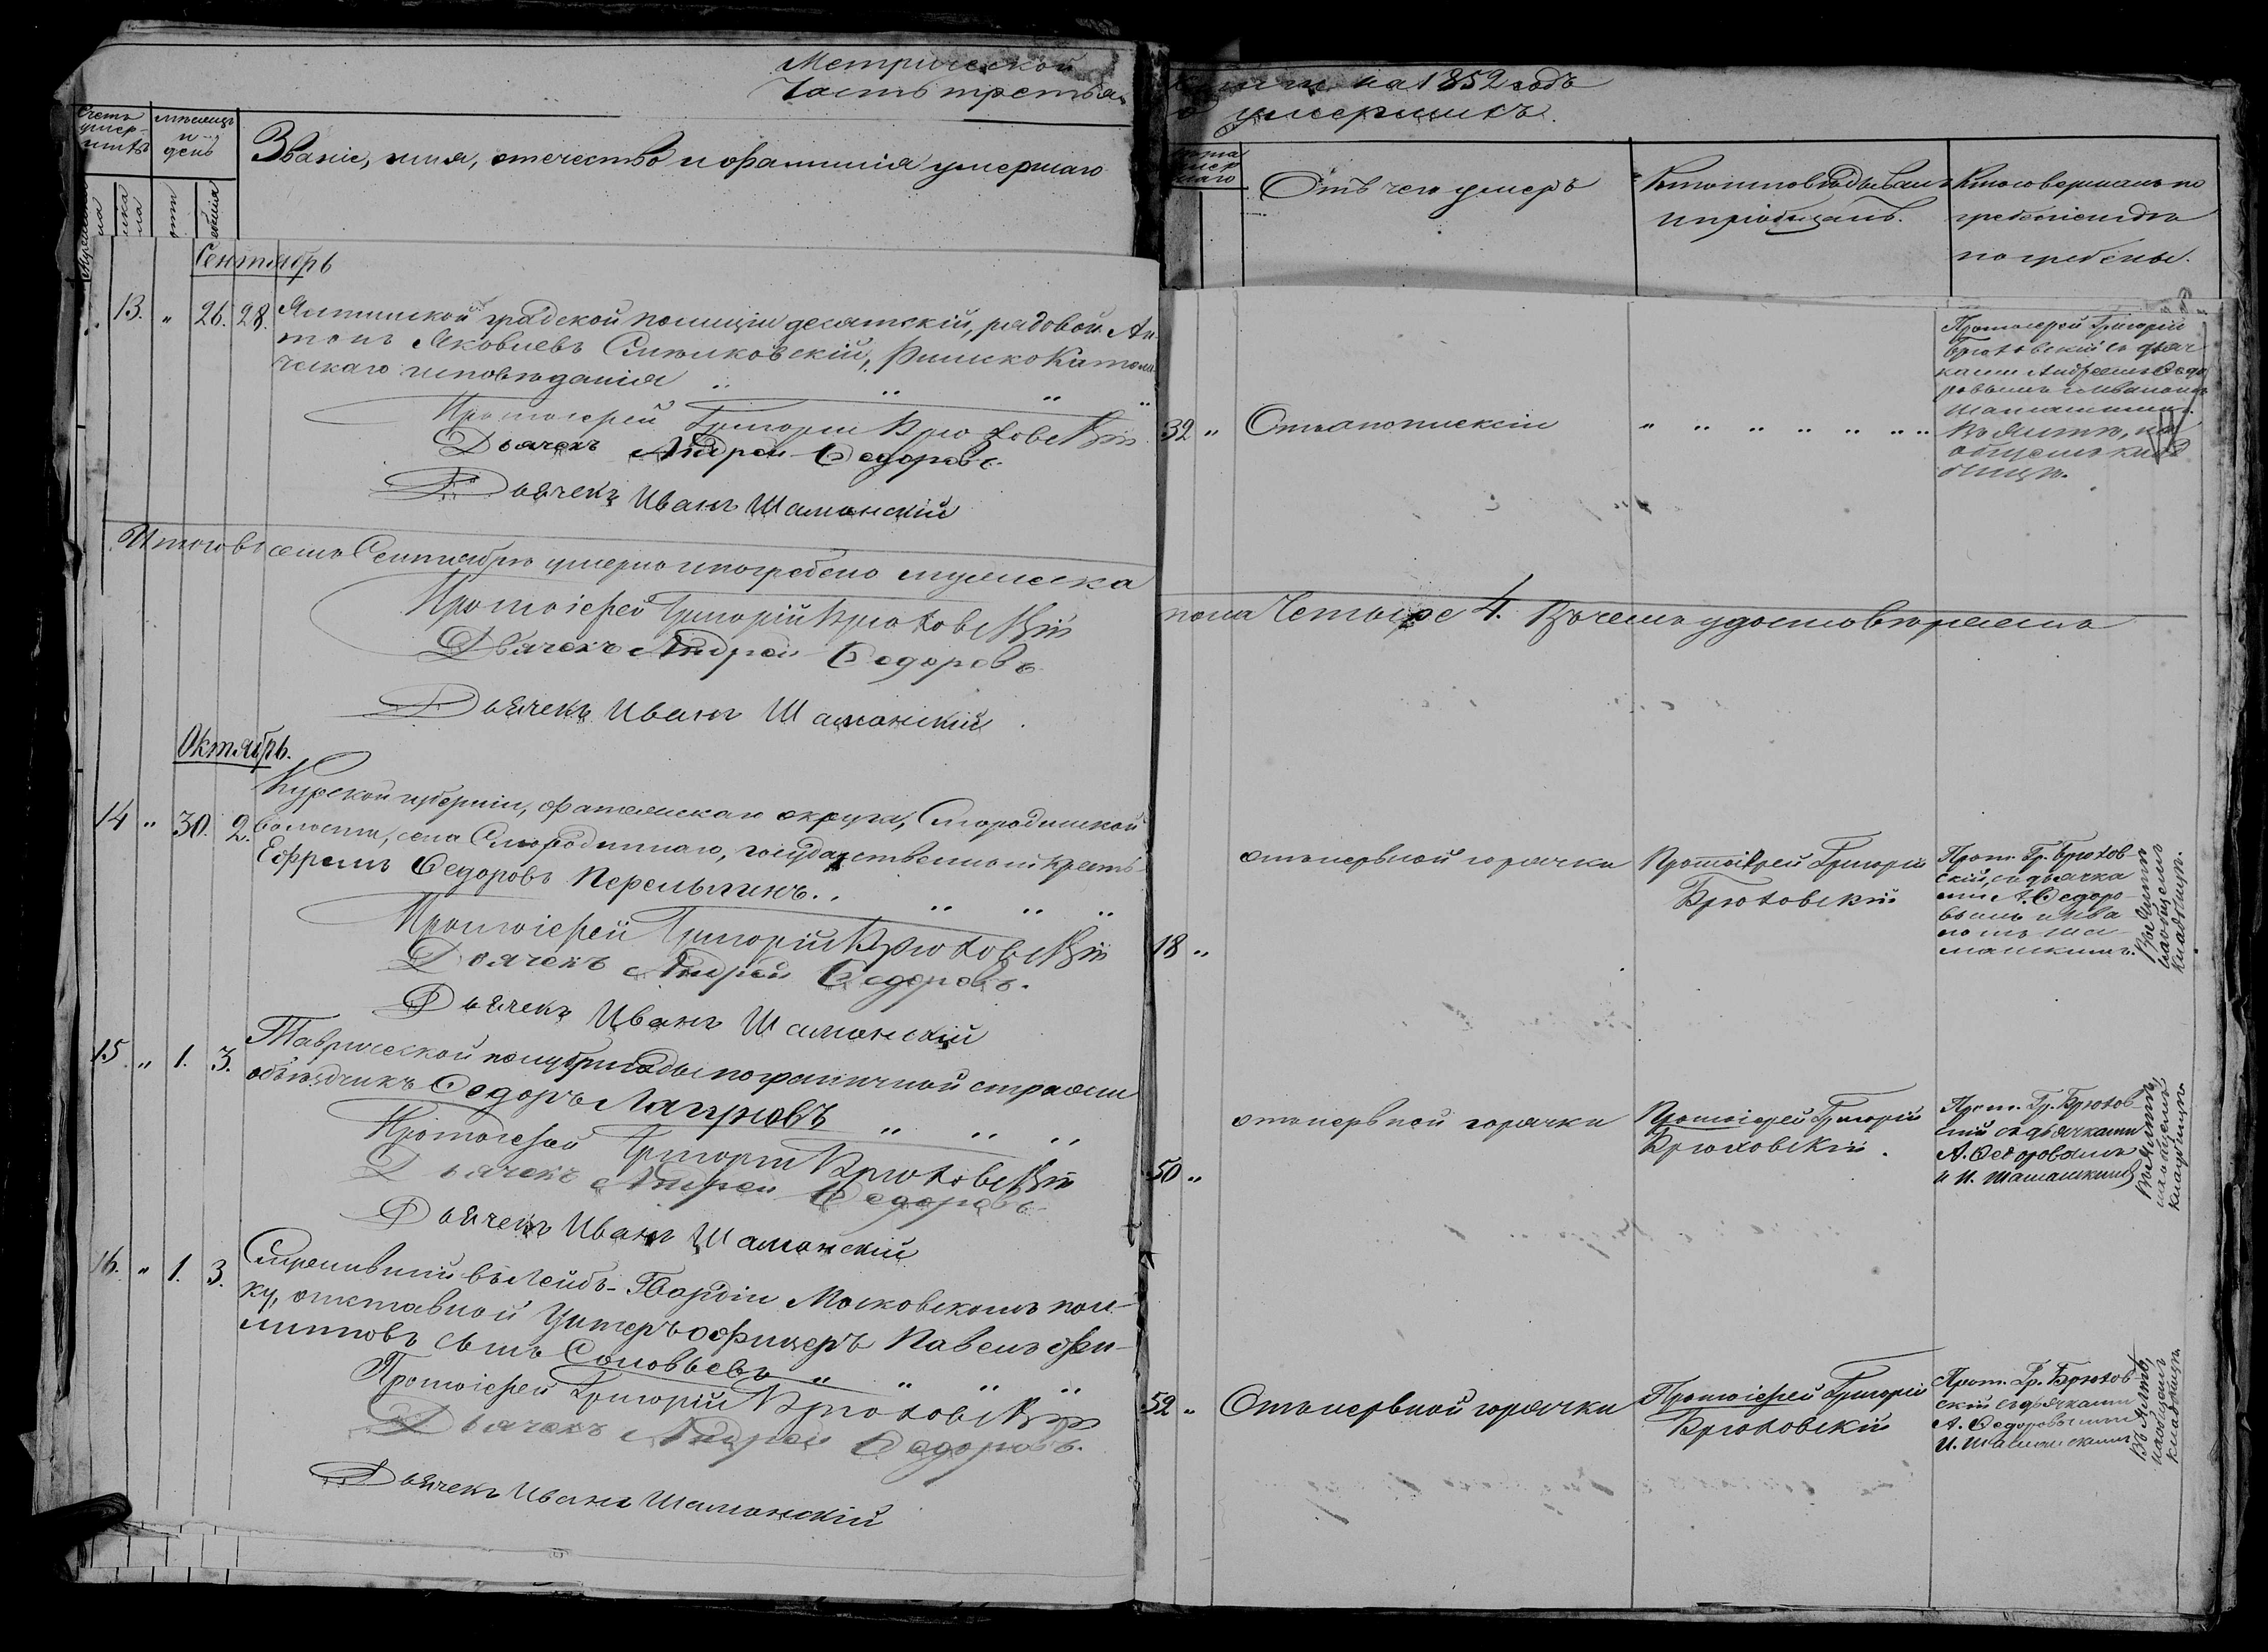 Метрической
Часть третья,
книги на 1852 годъ
о умершихъ.
Счетъ умер-шихъ
Мѣсяцъ и день
Званіе, имя, отечество и фамилія умершаго
Лѣта умер шаго
Отъ чего умеръ
Кто исповѣдывалъ
и пріобщалъ.
Кто совершалъ по
гребеніе и гдѣ
погребены.
Сентябрь
13. " 26. 28. Ялтинской градской полиціи десятскій, рядовой Ан-
тонъ Яковлевъ Римско Католи
ческаго исповѣданія " " " "
Протоіерей Григорій Брюховскій
Дьячекъ Андрей Ѳедоровъ
Дьячекъ Иванъ Шаманскій
32 " Отъ апоплексіи " " " " " " "
Протоіерей Григорій
Брюховскій съ дьяч
ками Андреемъ Ѳедо
ровымъ и Иваномъ
Шаманскимъ.
Въ Ялтѣ, на
общемъ клад
бищѣ.
Итого въ семъ Сентябрѣ умерло и погребено мужеска
пола Четыре 4. Въ чемъ удостовѣряемъ
Протоіерей Григорій Брюховскій
Дьячекъ Андрей Ѳедоровъ
Дьячекъ Иванъ Шаманскій
Октябрь.
14 " 30. 2. Курской губерніи, Фатежскаго округа, Смородинской
волости, села Смородиннаго, государственный крестья-
Ефремъ Ѳедоровъ Перелыгинъ. " " " "
Протоіерей Григорій Брюховскій
Дьячекъ Андрей Ѳедоровъ.
Дьячекъ Иванъ Шаманскій
18 " отъ нервной горячки
Протоіерей Григорій
Брюховскій
Прот. Гр. Брюхов-
скій, съ дьячка
ми А. Ѳедоро-
вымъ и Ива
номъ Ша-
манскимъ.
Въ Ялтѣ
на общемъ
кладбищѣ.
15 " 1. 3. Таврической полубригады пограничной стражи
объѣздчикъ Ѳедоръ " " "
Протоіерей Григорій Брюховскій
Дьячекъ Андрей Ѳедоровъ
Дьячекъ Иванъ Шаманскій
50 " отъ нервной горячки
Протоіерей Григорій
Брюховскій.
Прот. Гр. Брюхов-
скій съ дьячками
А. Ѳедоровымъ
и И. Шаманскимъ
Въ Ялтѣ,
на общемъ
кладбищѣ.
16. " 1. 3. Служившій въ Лейбъ-Гвардіи Московскомъ пол-
ку, отставной Унтеръ офицеръ Павелъ Фи-
липповъ сынъ Соловьевъ " " " "
Протоіерей Григорій Брюховскій
Дьячекъ Андрей Ѳедоровъ.
Дьячекъ Иванъ Шаманскій
52 " Отъ нервной горячки
Протоіерей Григорій
Брюховскій
Прот. Гр. Брюхов
скій съ дьячками
А. Ѳедоровымъ и
И. Шаманскимъ
Въ Ялтѣ,
на общемъ
кладбищѣ.